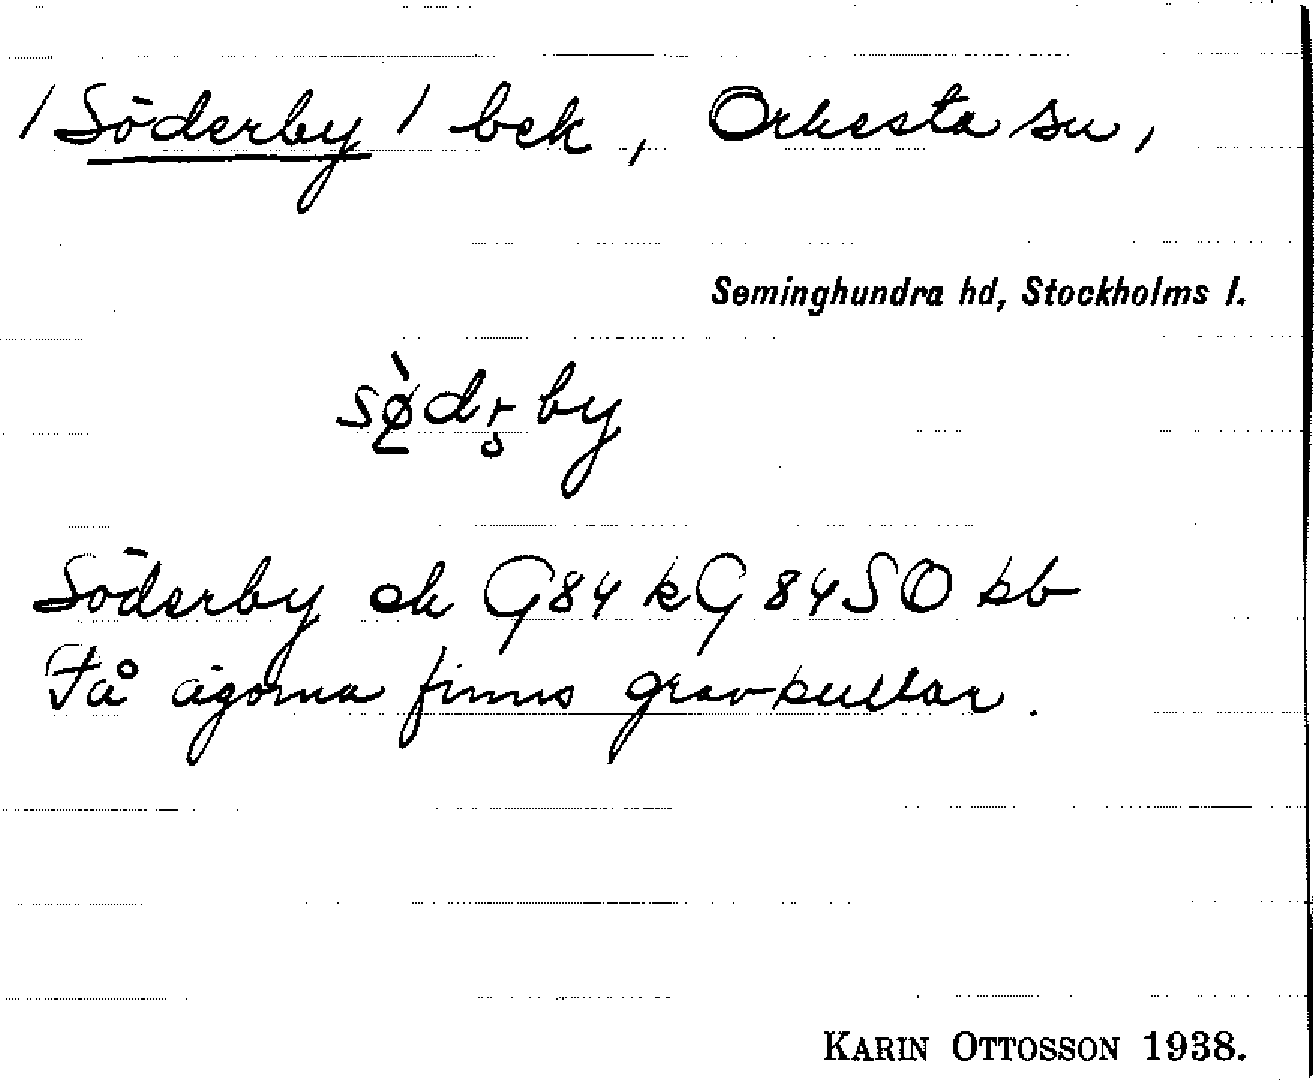 / Söderby / bek, Orkesta sn,
Seminghundra hd, Stockholms l.
sø̀dr̥by
Söderby ek G84 kG84SO kb
På ägorna finns gravkullar.
KARIN OTTOSSON 1938.